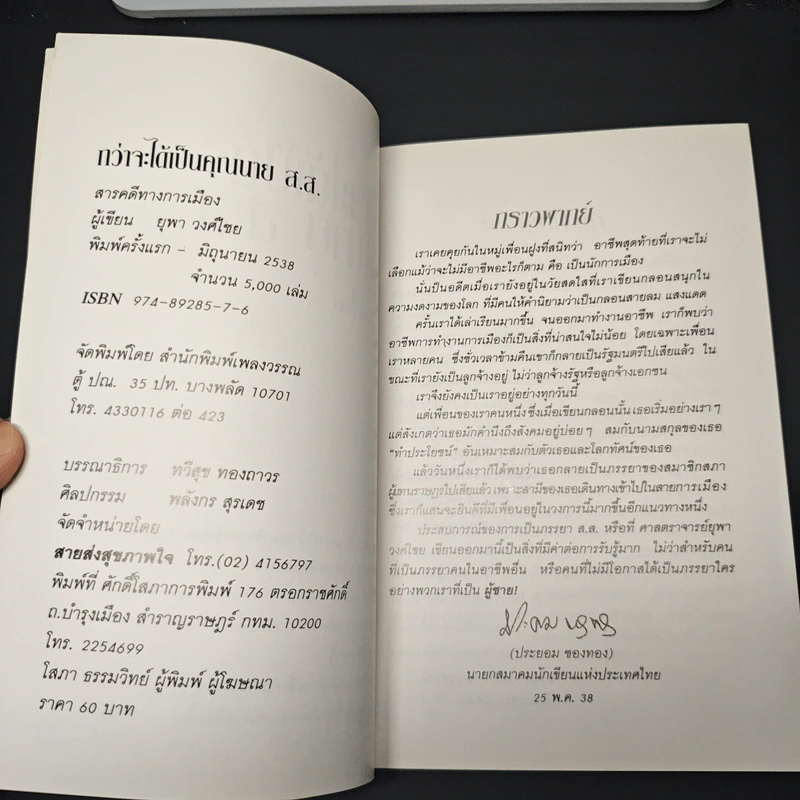 กว่าจะได้เป็นคุณนาย ส.ส.
สารคดีทางการเมือง
ผู้เขียน ยุพา วงศ์ไชย
พิมพ์ครั้งแรก – มิถุนายน 2538
จำนวน 5,000 เล่ม
ISBN 974-89285-7-6
จัดพิมพ์โดย สำนักพิมพ์เพลงวรรณ
ตู้ ปณ. 35 ปท. บางพลัด 10701
โทร. 4330116 ต่อ 423
บรรณาธิการ ทวีสุข ทองถาวร
ศิลปกรรม พลังกร สุรเดช
จัดจำหน่ายโดย
สายส่งสุขภาพใจ โทร.(02) 4156797
พิมพ์ที่ ศักดิ์โสภาการพิมพ์ 176 ตรอกราชศักดิ์
ถ.บำรุงเมือง สำราญราษฎร์ กทม. 10200
โทร. 2254699
โสภา ธรรมวิทย์ ผู้พิมพ์ ผู้โฆษณา
ราคา 60 บาท
กราวพากย์
เราเคยคุยกันในหมู่เพื่อนฝูงที่สนิทว่า อาชีพสุดท้ายที่เราจะไม่
เลือกแม้ว่าจะไม่มีอาชีพอะไรก็ตาม คือ เป็นนักการเมือง
นั่นเป็นอดีตเมื่อเรายังอยู่ในวัยสดใสที่เราเขียนกลอนสนุกใน
ความงดงามของโลก ที่มีคนให้คำนิยามว่าเป็นกลอนสายลม แสงแดด
ครั้นเราได้เล่าเรียนมากขึ้น จนออกมาทำงานอาชีพ เราก็พบว่า
อาชีพการทำงานการเมืองก็เป็นสิ่งที่น่าสนใจไม่น้อย โดยเฉพาะเพื่อน
เราหลายคน ซึ่งชั่วเวลาข้ามคืนเขาก็กลายเป็นรัฐมนตรีไปเสียแล้ว ใน
ขณะที่เรายังเป็นลูกจ้างอยู่ ไม่ว่าลูกจ้างรัฐหรือลูกจ้างเอกชน
เราจึงยังคงเป็นเราอยู่อย่างทุกวันนี้
แต่เพื่อนของเราคนหนึ่ง ซึ่งเมื่อเขียนกลอนนั้น เธอเริ่มอย่างเรา ๆ
แต่สังเกตว่าเธอมักคำนึงถึงสังคมอยู่บ่อย ๆ สมกับนามสกุลของเธอ
“ทำประโยชน์” อันเหมาะสมกับตัวเธอและโลกทัศน์ของเธอ
แล้ววันหนึ่งเราก็ได้พบว่าเธอกลายเป็นภรรยาของสมาชิกสภา
ผู้แทนราษฎรไปเสียแล้ว เพราะสามีของเธอเดินทางเข้าไปในสายการเมือง
ซึ่งเราก็แสนจะยินดีที่มีเพื่อนอยู่ในวงการนี้มากขึ้นอีกแนวทางหนึ่ง
ประสบการณ์ของการเป็นภรรยา ส.ส. หรือที่ ศาสตราจารย์ยุพา
วงศ์ไชย เขียนออกมานี้เป็นสิ่งที่มีค่าต่อการรับรู้มาก ไม่ว่าสำหรับคน
ที่เป็นภรรยาคนในอาชีพอื่น หรือคนที่ไม่มีโอกาสได้เป็นภรรยาใคร
อย่างพวกเราที่เป็น ผู้ชาย!
(ประยอม ซองทอง)
นายกสมาคมนักเขียนแห่งประเทศไทย
25 พ.ค. 38